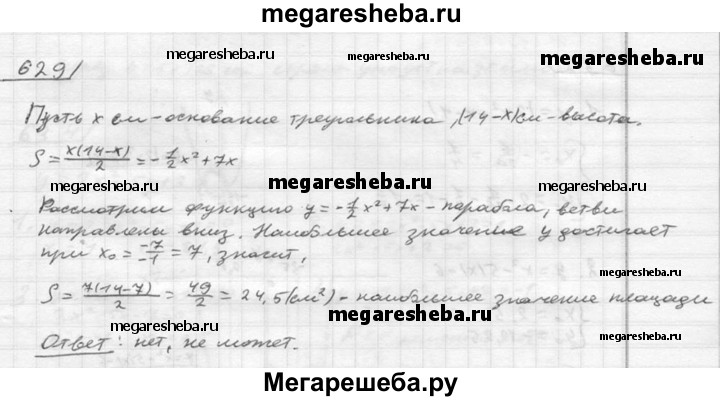 megaresheba.ru
629/
megaresheba.ru
megaresheba.ru
megaresheba.ru
Пусть x см - основание треугольника, (14-x)см - высота.
S = x(14-x)/2 = -1/2 x² + 7x
megaresheba.ru
megaresheba.ru
Рассмотрим функцию y = -1/2 x² + 7x - парабола, ветви
направлены вниз. Наибольшее значение y достигает
при x₀ = -7/-1 = 7, значит,
S = 7(14-7)/2 = 49/2 = 24,5(см²) - наибольшее значение площади
megaresheba.ru
megaresheba.ru
megaresheba.ru
Ответ: нет, не может.
Мегарешеба.ру